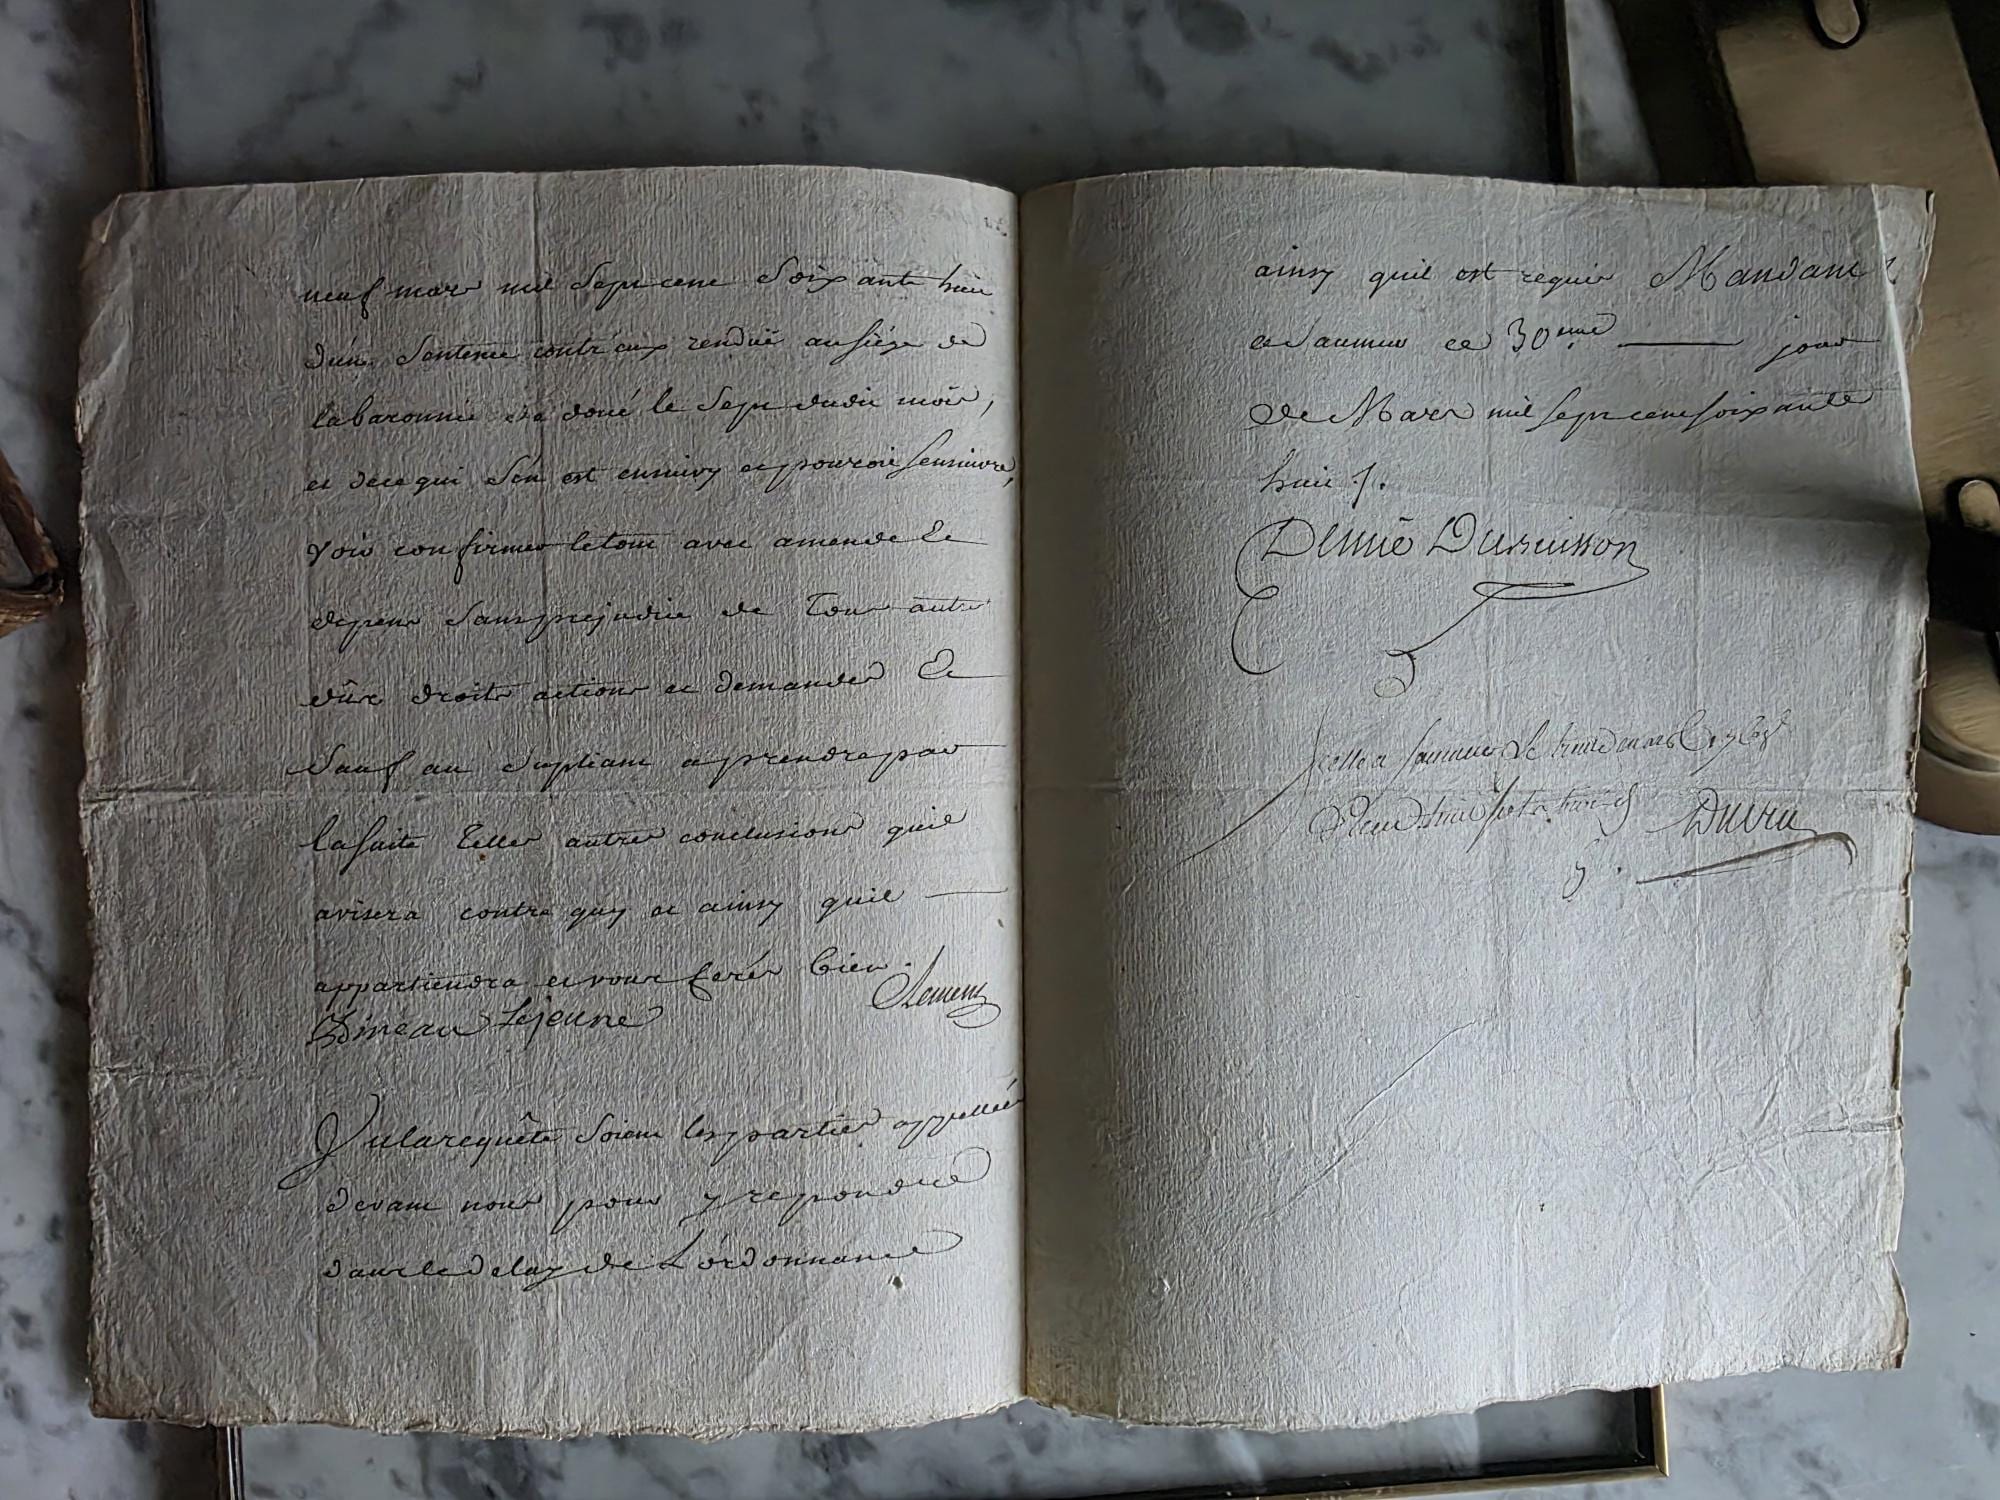 neuf mars mil sept cent soixante huit
d'un sentence contr'eux rendüe au siége de
la baronnie de doué le sept dudit mois,
et de ce qui s'en est ensuivy et pouroit sensuivre,
voir confirmer le tout avec amende et
depens sans prejudice de tous autres
dûs droits actions et demandes et
sauf au supliant a prendre par
la suite telles autres conclusions quil
avisera contre quy et ainsy quil
appartiendra et vous ferés bien.
Bineau Lejeune Clemens
Vu la requête soient les parties appellées
devant nous pour y repondre
dans le delay de L'ordonnance
ainsy quil est requis Mandant
a Saumur ce 30eme jour
de Mars mil sept cent soixante
huit ./.
Demié Dubuisson
scellé a saumur le trente mars
Duvau